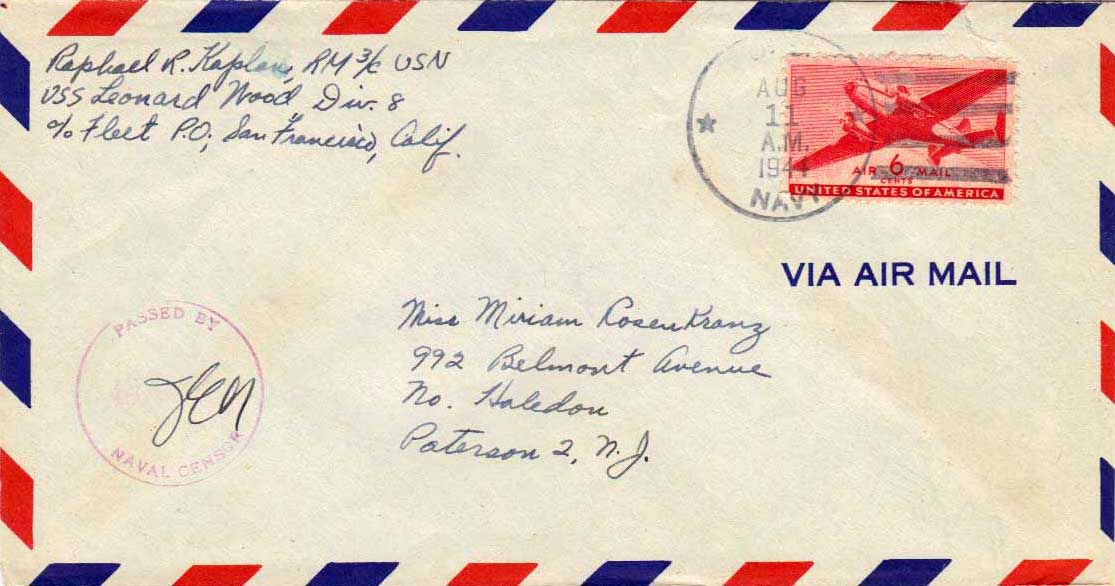 Raphael R. Kaplan, RM 3/c USN
USS Leonard Wood Div. 8
c/o Fleet P.O., San Francisco, Calif.
AUG
11
A.M.
1944
NAVY
AIR 6 MAIL
CENTS
UNITED STATES OF AMERICA
VIA AIR MAIL
Miss Miriam Rosenkranz
992 Belmont Avenue
No. Haledon
Paterson 2, N.J.
PASSED BY
NAVAL CENSOR